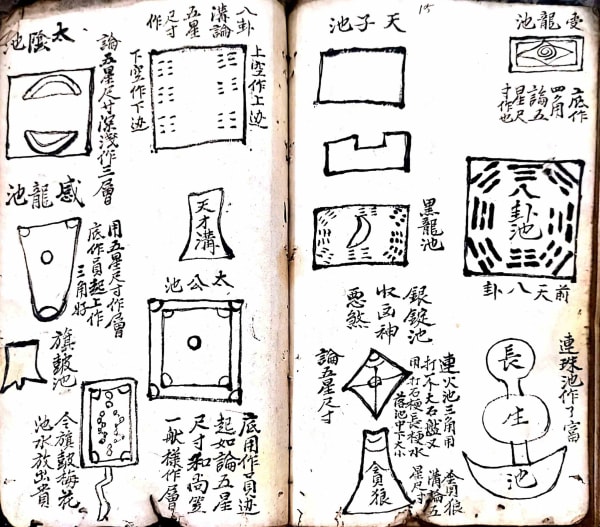 15
變龍池
底作
四个角
論五
星尺
寸作也
八卦池
前天八卦
連珠池作了富
長
生
池
天子池
黑龍池
銀錠池
收凶神
惡煞
連火池三角用
打不大石盤又
用打石梗長梗水
落池中下大小
論五星尺寸
貪狼
貪狼
溝論五
星尺寸
八卦
溝論
五星
尺寸
作
上空作上迹
下空作下迹
天才溝
太公池
底用作員迹
起如論五星
尺寸和尚笠
一般樣作層
太陰池
論五星尺寸深淺作三層
感龍池
用五星尺寸作層
底作員起上作
三角好
旗鼓池
令旗鼓梅花
池水放出貴